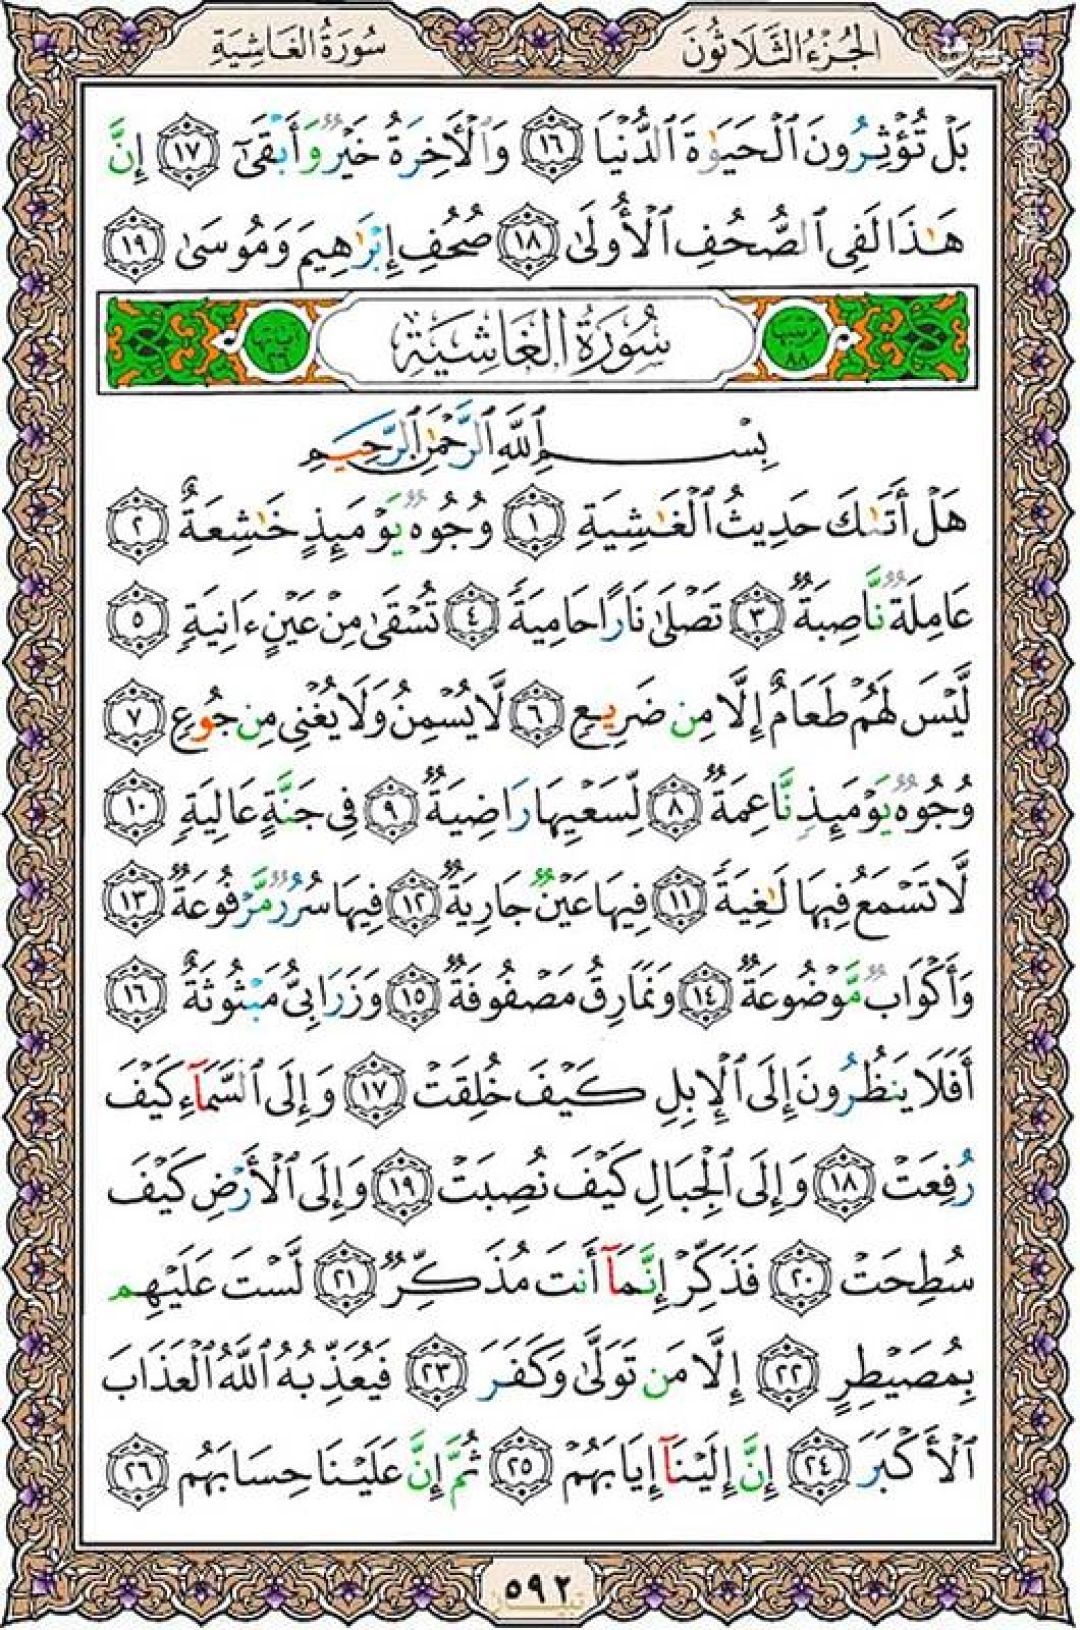 الجُزْءُ الثَّلَاثُونَ
سُورَةُ الغَاشِيَةِ
بَلْ تُؤْثِرُونَ ٱلْحَيَوٰةَ ٱلدُّنْيَا ١٦ وَٱلْأَخِرَةُ خَيْرٌ وَأَبْقَىٰٓ ١٧ إِنَّ
هَٰذَا لَفِى ٱلصُّحُفِ ٱلْأُولَىٰ ١٨ صُحُفِ إِبْرَٰهِيمَ وَمُوسَىٰ ١٩
ترتيبها ٨٨
سُورَةُ الغَاشِيَةِ
آياتها ٢٦
بِسْمِ ٱللَّهِ ٱلرَّحْمَٰنِ ٱلرَّحِيمِ
هَلْ أَتَىٰكَ حَدِيثُ ٱلْغَٰشِيَةِ ١ وُجُوهٌ يَوْمَئِذٍ خَٰشِعَةٌ ٢
عَامِلَةٌ نَّاصِبَةٌ ٣ تَصْلَىٰ نَارًا حَامِيَةً ٤ تُسْقَىٰ مِنْ عَيْنٍ ءَانِيَةٍ ٥
لَّيْسَ لَهُمْ طَعَامٌ إِلَّا مِن ضَرِيعٍ ٦ لَّا يُسْمِنُ وَلَا يُغْنِى مِن جُوعٍ ٧
وُجُوهٌ يَوْمَئِذٍ نَّاعِمَةٌ ٨ لِّسَعْيِهَا رَاضِيَةٌ ٩ فِى جَنَّةٍ عَالِيَةٍ ١٠
لَّا تَسْمَعُ فِيهَا لَٰغِيَةً ١١ فِيهَا عَيْنٌ جَارِيَةٌ ١٢ فِيهَا سُرُرٌ مَّرْفُوعَةٌ ١٣
وَأَكْوَابٌ مَّوْضُوعَةٌ ١٤ وَنَمَارِقُ مَصْفُوفَةٌ ١٥ وَزَرَابِىُّ مَبْثُوثَةٌ ١٦
أَفَلَا يَنظُرُونَ إِلَى ٱلْإِبِلِ كَيْفَ خُلِقَتْ ١٧ وَإِلَى ٱلسَّمَآءِ كَيْفَ
رُفِعَتْ ١٨ وَإِلَى ٱلْجِبَالِ كَيْفَ نُصِبَتْ ١٩ وَإِلَى ٱلْأَرْضِ كَيْفَ
سُطِحَتْ ٢٠ فَذَكِّرْ إِنَّمَآ أَنتَ مُذَكِّرٌ ٢١ لَّسْتَ عَلَيْهِم
بِمُصَيْطِرٍ ٢٢ إِلَّا مَن تَوَلَّىٰ وَكَفَرَ ٢٣ فَيُعَذِّبُهُ ٱللَّهُ ٱلْعَذَابَ
ٱلْأَكْبَرَ ٢٤ إِنَّ إِلَيْنَآ إِيَابَهُمْ ٢٥ ثُمَّ إِنَّ عَلَيْنَا حِسَابَهُم ٢٦
٥٩٢